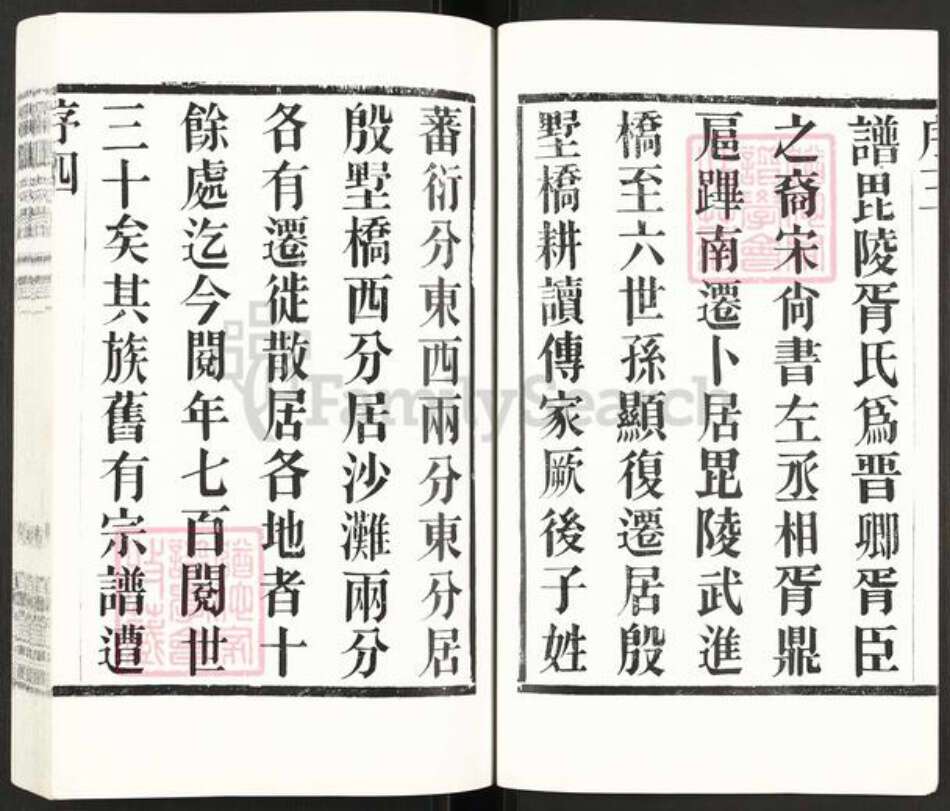 序三
譜毘陵胥氏爲晋卿胥臣
之裔宋尙書左丞相胥鼎
扈蹕南遷卜居毘陵武進
橋至六世孫顯復遷居殷
墅橋耕讀傳家厥後子姓
蕃衍分東西兩分東分居
殷墅橋西分居沙灘兩分
各有遷徙散居各地者十
餘處迄今閱年七百閱世
三十矣其族舊有宗譜遭
序四
FamilySearch